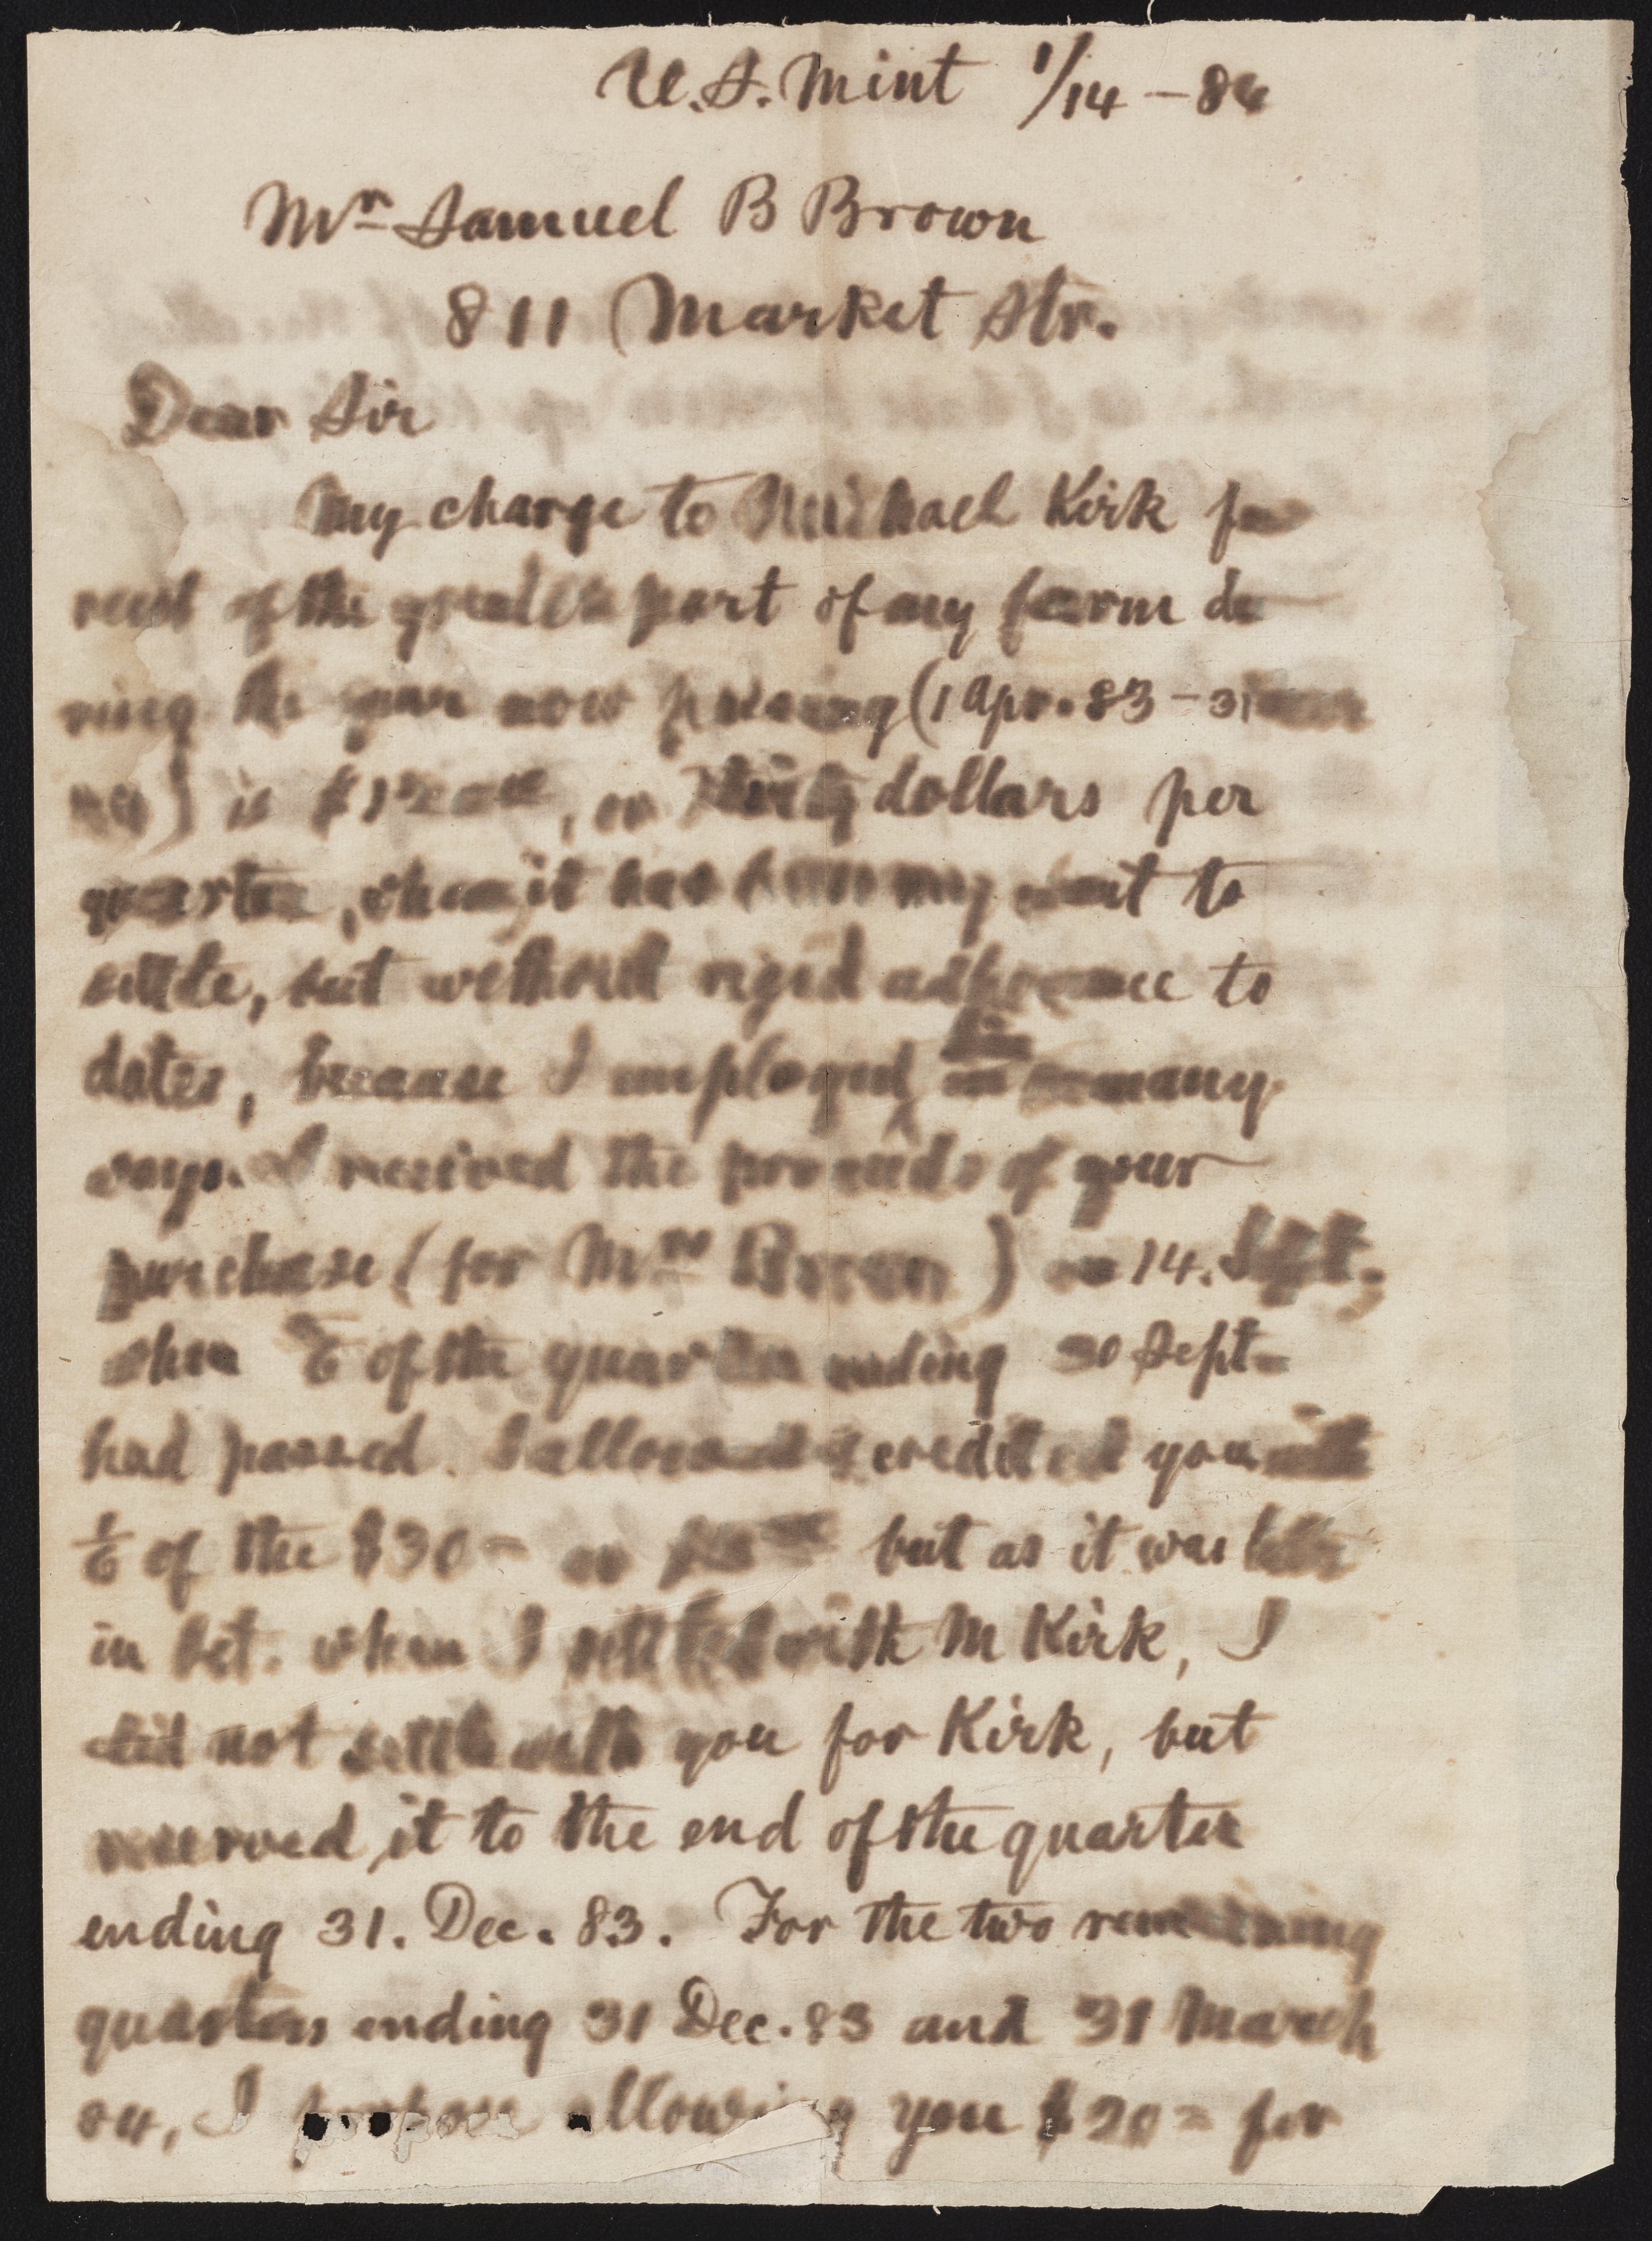 U.S. Mint 1/14 – 84
Mr Samuel B Brown
811 Market Str.
Dear Sir
My charge to Michael Kirk for
rent of the greater part of my farm du
ring the year now passing (1 Apr. 83 – 31 Mar
84) is $120, or thirty dollars per
quarter, when it has been my wont to
settle, but without rigid adherence to
dates, because I employed him in so many
ways. I received the proceeds of your
purchase (for Mrs Brown) on 14. Sept,
when of the quarter ending 30 Sept
had passed. I allowed & credited you with
1/6 of the $30 – or but as it was late
in Oct. when I settled with M Kirk, I
did not settle with you for Kirk, but
reserved it to the end of the quarter
ending 31. Dec. 83. For the two remaining
quarters ending 31 Dec. 83 and 31 March
84, I propose allowing you $20 = for